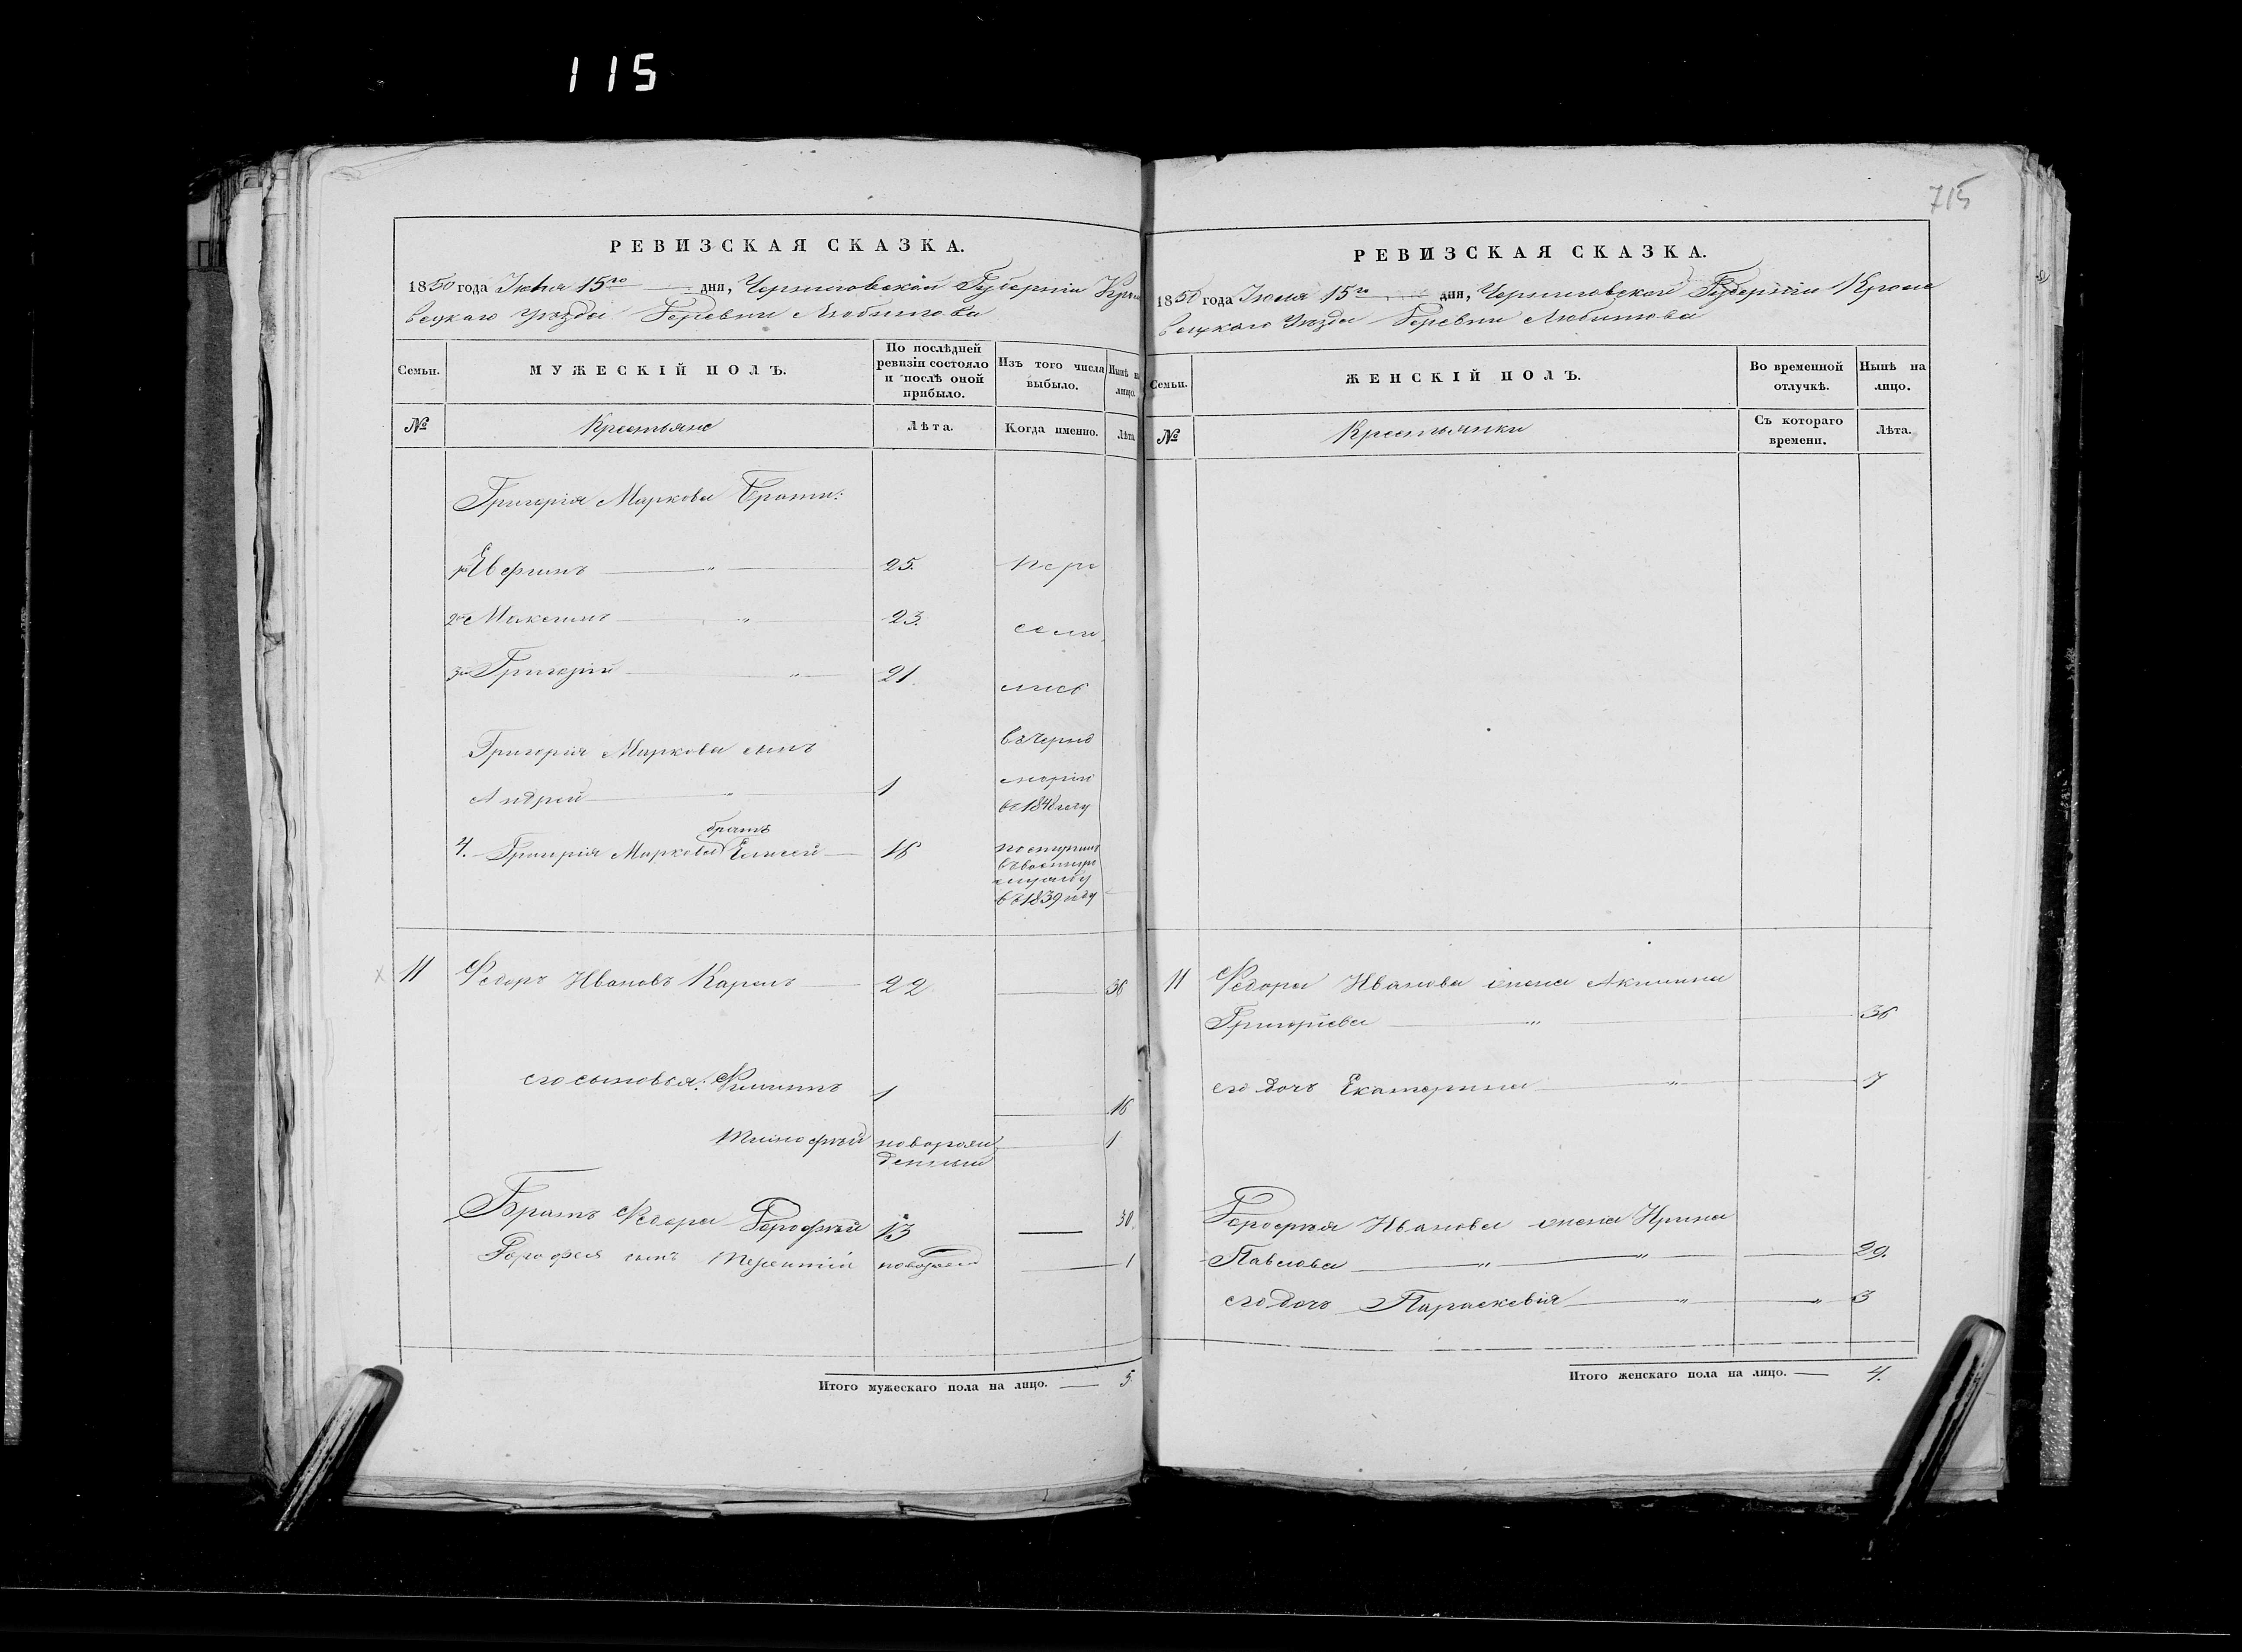 115
715
РЕВИЗСКАЯ СКАЗКА.
1850 года Іюня 15го дня, Черниговской Губерніи Кроле
вецкаго Уѣзда Деревни Любитова
Семьи.
МУЖЕСКІЙ ПОЛЪ.
По послѣдней ревизіи состояло и послѣ оной прибыло.
Изъ того числа выбыло.
Нынѣ на лицо.
№
Крестьяне
Лѣта.
Когда именно.
Лѣта
Григорія Маркова Братья:
Евфимъ 25. пере
2й Максимъ 23. сели
3й Григорій 21 лись
въ Черно
Григорія Маркова сынъ
Андрей 1
моріи
въ 1848 году
братъ
4. Григорія Маркова Елисей 16 поступилъ
въ военную
службу
въ 1839 году
11 Федоръ Ивановъ Карпъ 22 36
его сыновья: Филиппъ 1 16
Тимофѣй новорож 1
денный
Братъ Федора Дорофѣй 13 30.
Дорофея сынъ Терентій новорож 1
Итого мужескаго пола на лицо. — 5
РЕВИЗСКАЯ СКАЗКА.
1850 года Іюня 15го дня, Черниговской Губерніи Кроле
вецкаго Уѣзда Деревни Любитова
Семьи.
ЖЕНСКІЙ ПОЛЪ.
Во временной отлучкѣ.
Нынѣ на лицо.
№
Крестьянки
Съ котораго времени.
Лѣта.
11 Федора Иванова жена Акилина
Григорiева 36
его дочь Екатерина 7
Дорофея Иванова жена Ирина
Павлова 29.
его дочь Параскевія 3
Итого женскаго пола на лицо. — 4.